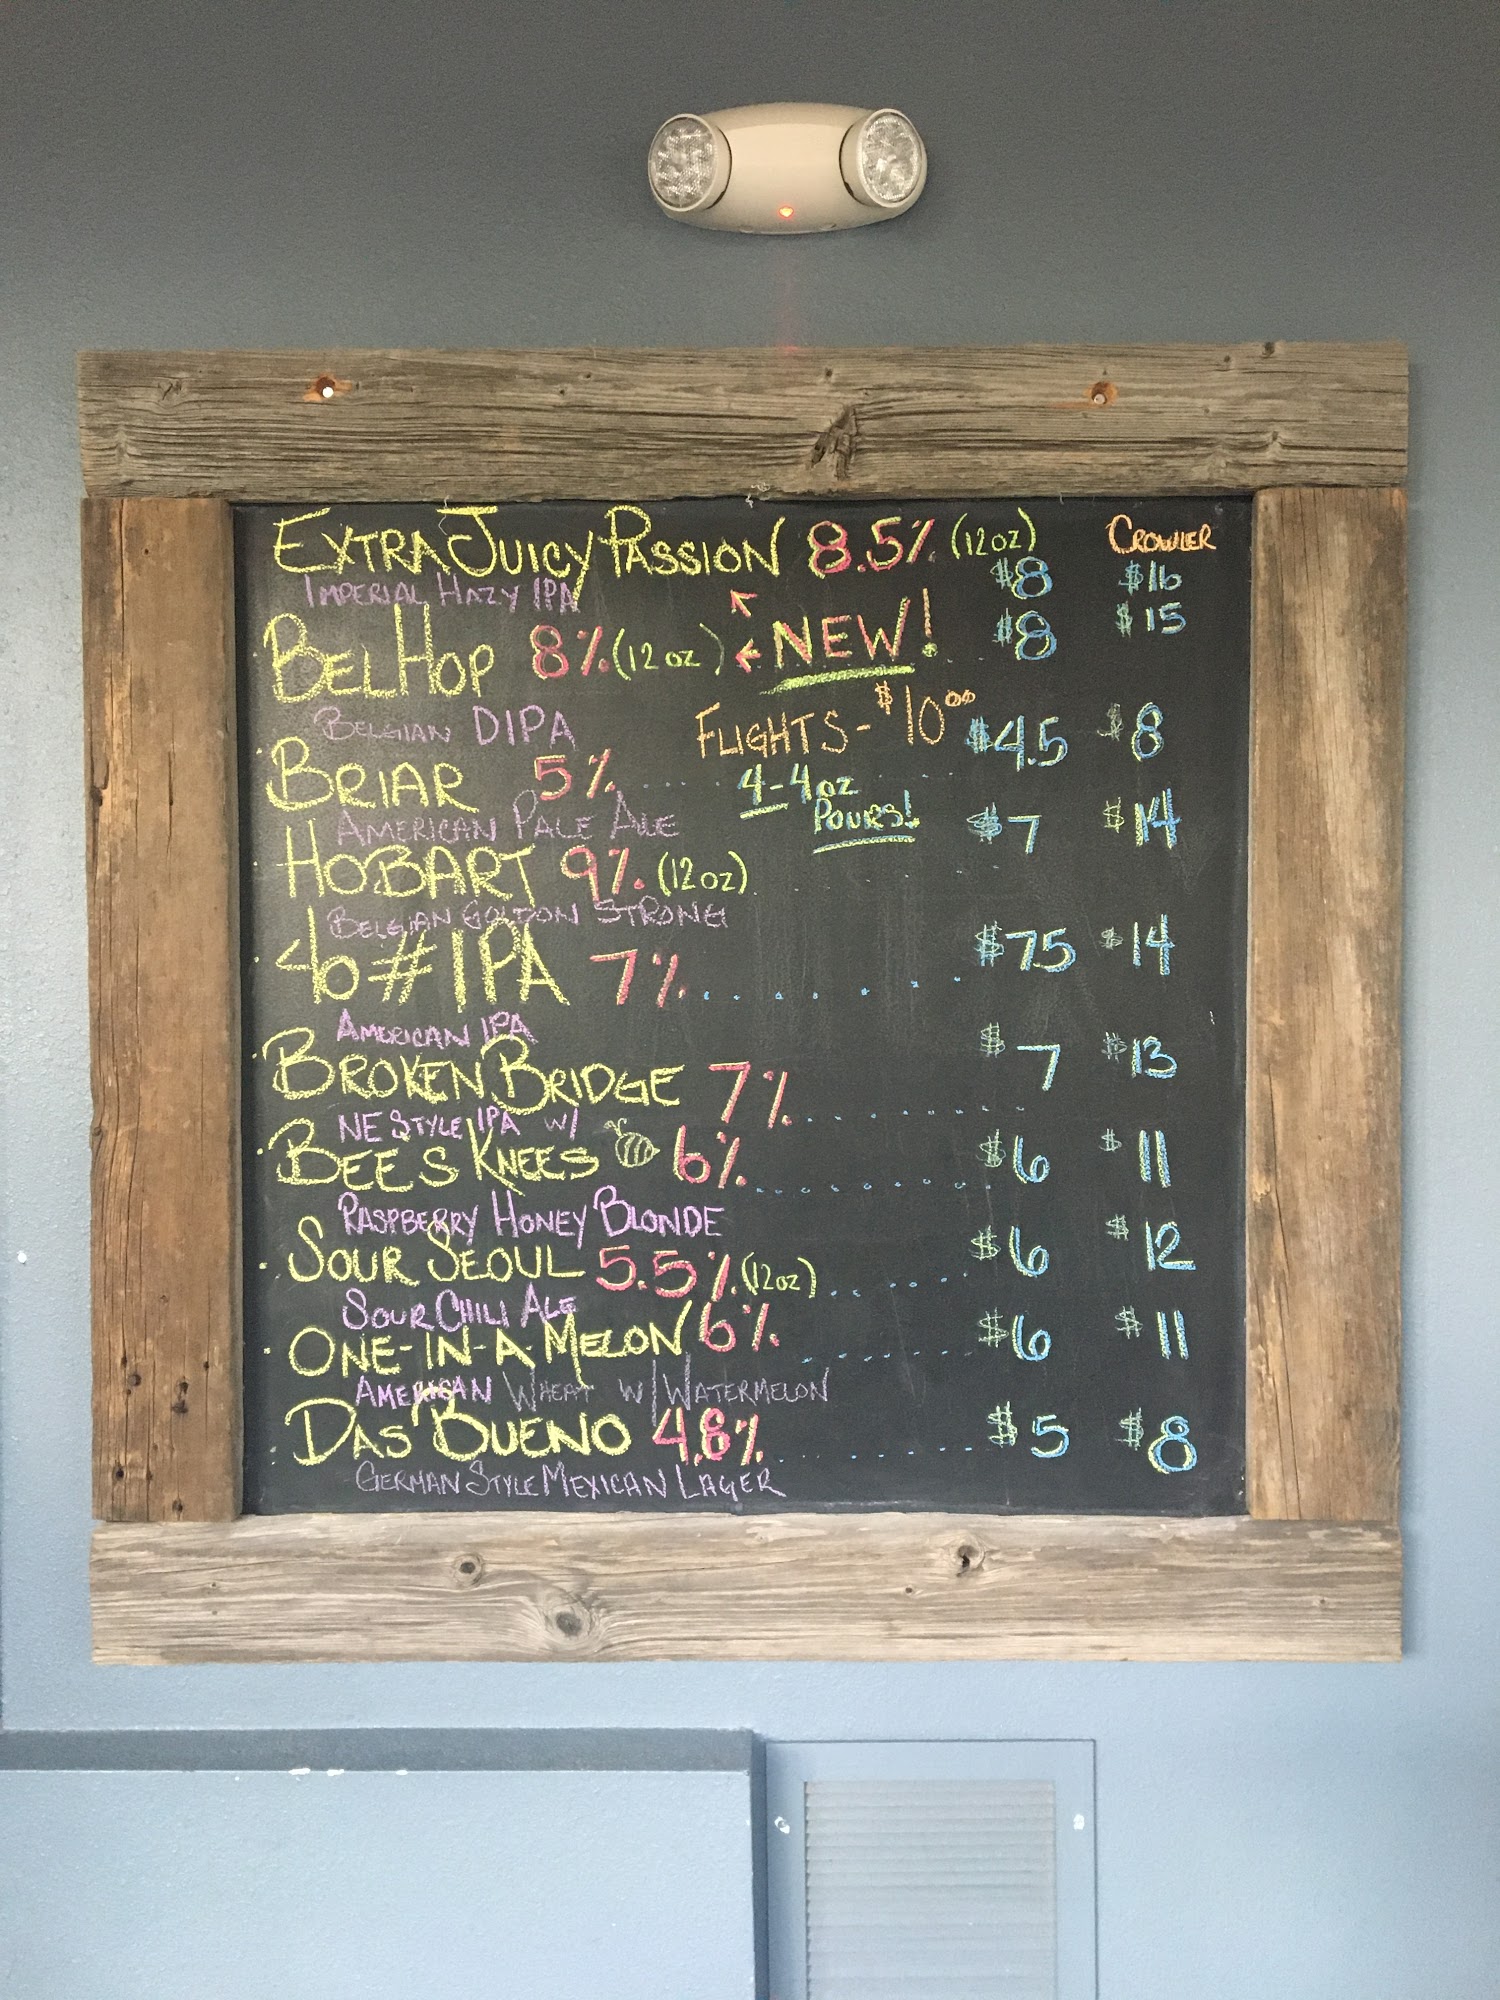 EXTRA JUICY PASSION 8.5% (12oz) $8 CROWLER $16
IMPERIAL HAZY IPA
BELHOP 8% (12oz) NEW! $8 $15
BELGIAN DIPA
FLIGHTS - $10.00
4-4oz
POURS!
BRIAR 5% $4.5 $8
AMERICAN PALE ALE
HOBART 9% (12oz) $7 $14
BELGIAN GOLDON STRONG
40# IPA 7% $75 $14
AMERICAN IPA
BROKEN BRIDGE 7% $7 $13
NE STYLE IPA W/
BEES KNEES 6% $6 $11
RASPBERRY HONEY BLONDE
SOUR SEOUL 5.5% (12oz) $6 $12
SOUR CHILI ALE
ONE-IN-A MELON 6% $6 $11
AMERICAN WHEAT W/ WATERMELON
DAS BUENO 4.8% $5 $8
GERMAN STYLE MEXICAN LAGER